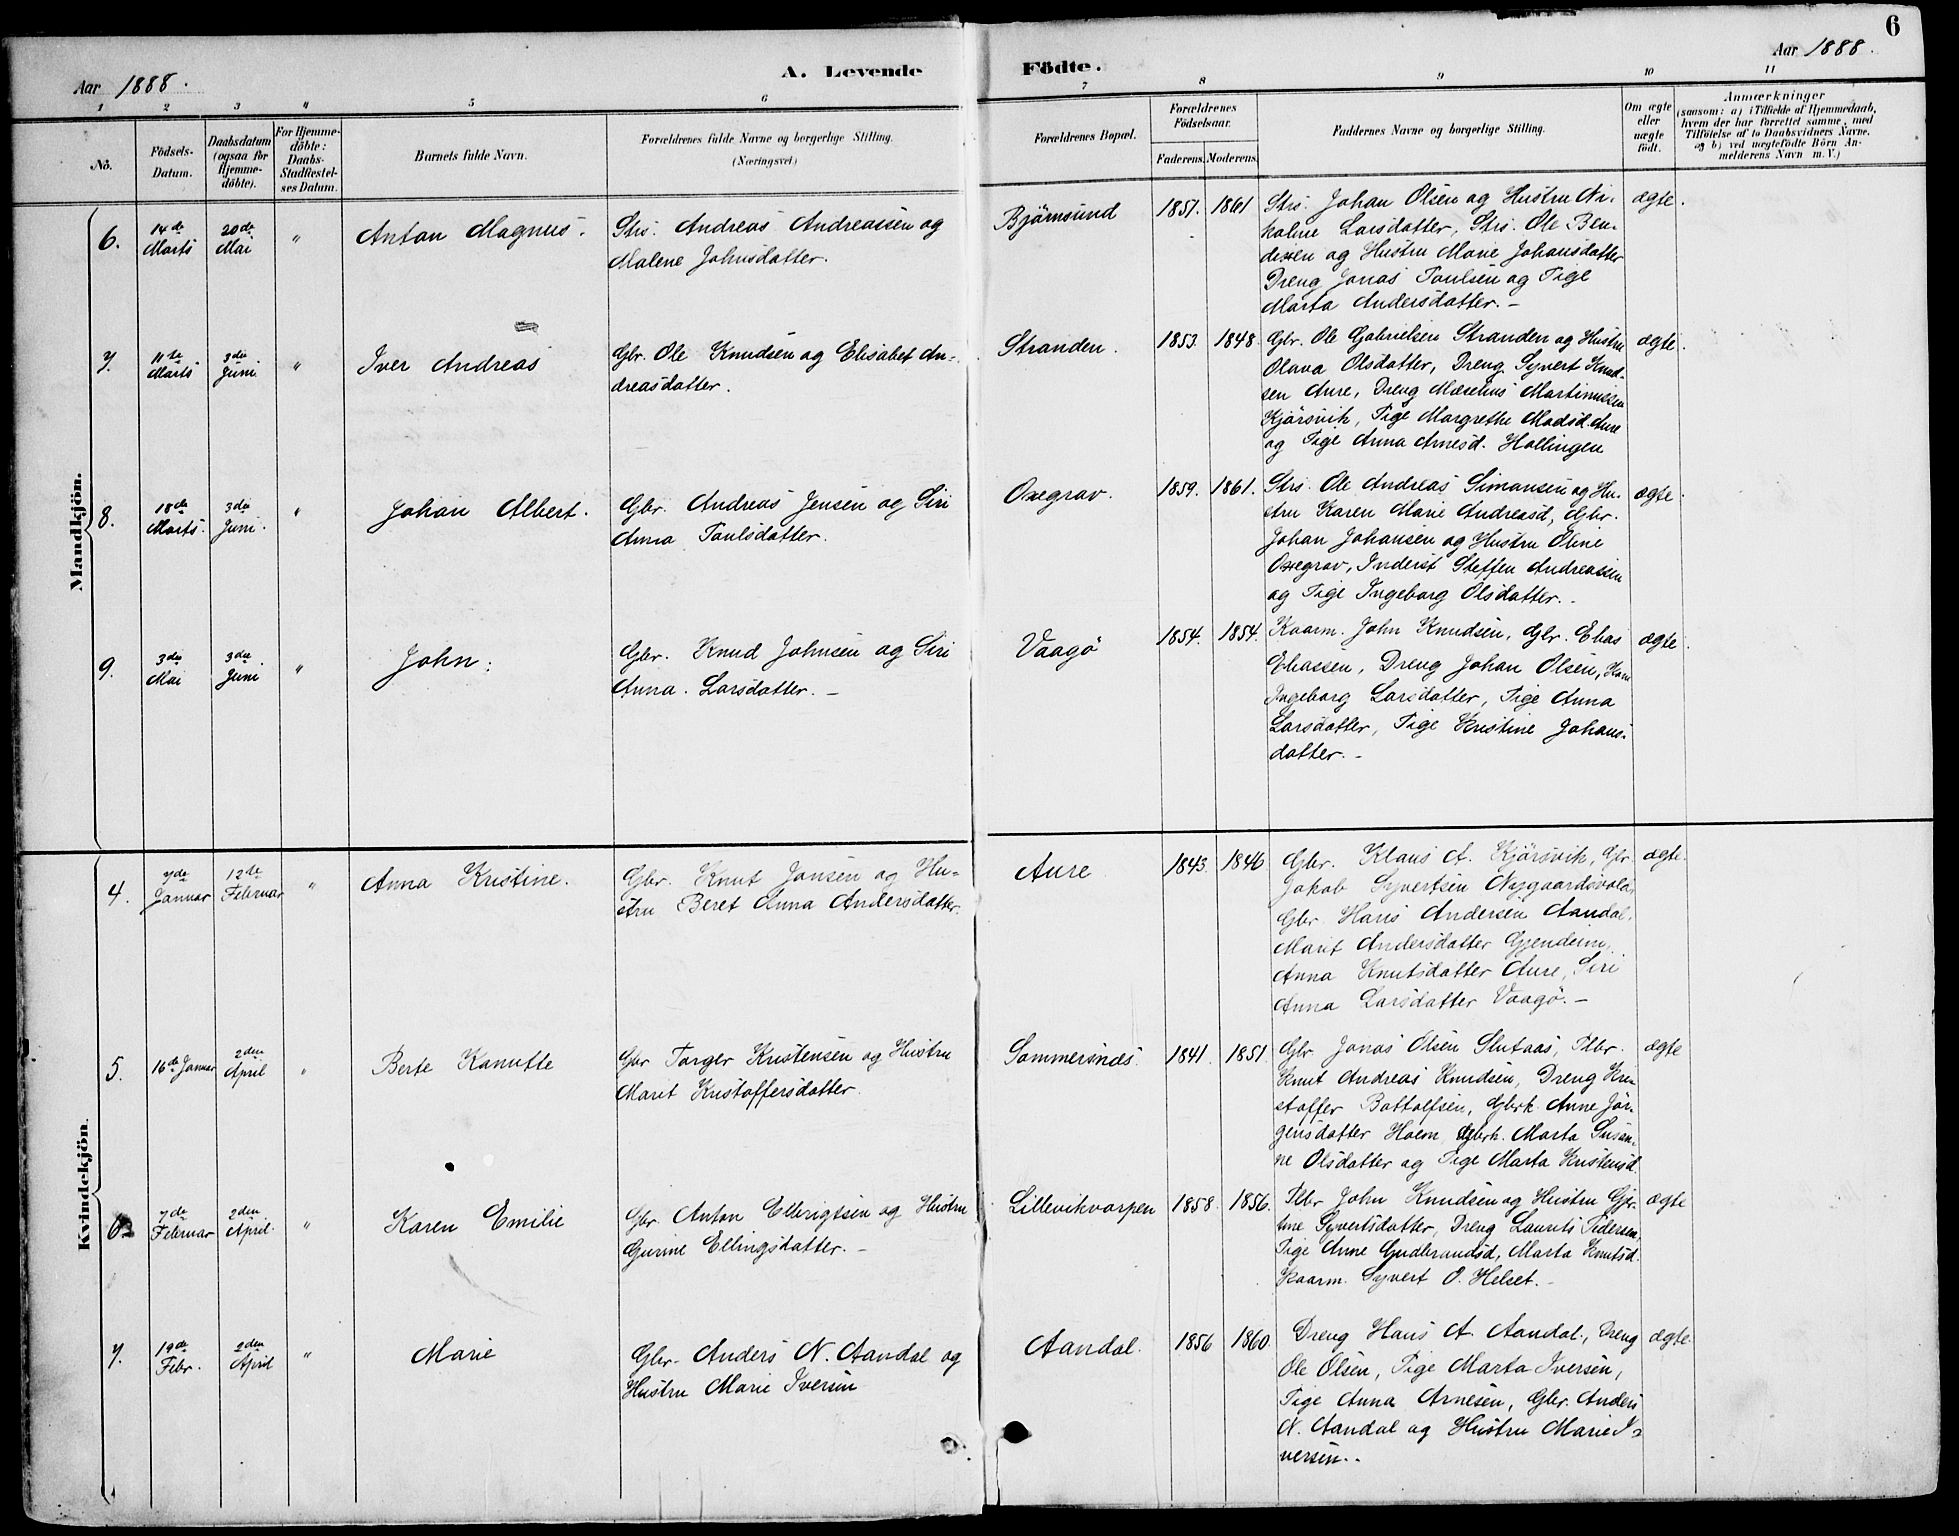 6
Aar 1888.
A. Levende Födte.
Aar 1888.
1 2 3 " 5 6 7 8 9 10 11
No.
Födsels-
Datum.
Daabsdatum
(ogsaa for
Hjemme-
döbte).
For Hjemme-
döbte:
Daabs-
Stadfæstel-
ses Datum.
Barnets fulde Navn.
Forældrenes fulde Navne og borgerlige Stilling.
(Næringsvei)
Forældrenes Bopæl.
Forældrenes
Födselsaar.
Faderens. Moderens.
Faddernes Navne og borgerlige Stilling.
Om ægte
eller
uægte
födt.
Anmærkninger
(saasom: a) i Tilfælde af Hjemmedaab,
hvem der har forrettet samme, med
Tilföielse af to Daabsvidners Navne,
og b) ved uægtefödte Börn An-
melderens Navn m. V.)
Mandkjön.
6.
14de
Marts
20de
Mai
"
Anton Magnus.
Strs. Andreas Andreassen og
Malene Johnsdatter.
Björnsund
1857. 1861
Strs. Johan Olsen og Hustru Ni-
koline Larsdatter, Strs. Ole Ben-
dixen og Hustru Marie Johansdatter
Dreng Jonas Paulsen og Pige
Marta Andersdatter. -
ægte.
7.
11te
Marts
3die
Juni
"
Iver Andreas
Gbr. Ole Knudsen og Elisabet An-
dreasdatter.
Stranden.
1853. 1848.
Gbr. Ole Gabrielsen Stranden og Hustru
Olava Olsdatter, Dreng Syvert Knud-
sen Aure, Dreng Martinussen
Kjörsvik, Pige Margrethe Madsd. Aure
og Pige Anna Arnesd. Hollingen
ægte.
8.
18de
Marts.
3die
Juni.
"
Johan Albert.
Gbr. Andreas Jensen og Siri
Anna Paulsdatter.
Oxegrav.
1859. 1861.
Strs. Ole Andreas Simonsen og Hu-
stru Karen Marie Andreasd, Gbr.
Johan Johansen og Hustru Oline
Oxegrav, Inderst Steffen Andreassen
og Pige Ingeborg Olsdatter. -
ægte.
9.
3die
Mai
3die
Juni
"
John.
Gbr. Knud Johnsen og Siri
Anna. Larsdatter. -
Vaagö
1854. 1854.
Kaarm. John Knudsen, Gbr. Elias
Eliassen, Dreng Johan Olsen,
Ingeborg Larsdatter, Pige Anna
Larsdatter, Pige Kristine Johans-
datter. -
ægte.
Kvindekjön.
4.
7de
Januar
12te
Februar
"
Anna Kristine.
Gbr. Knut Jansen og Hu-
stru Beret Anna Andersdatter.
Aure
1843. 1846
Gbr. Klaus A. Kjörsvik, Gbr.
Jakob Syvertsen Nygaardsvold,
Gbr. Hans Andersen Aandal,
Marit Andersdatter Gjendem,
Anna Knutsdatter Aure, Siri
Anna Larsdatter Vaagö. -
ægte.
5.
16de Januar
2den
April
"
Berte Kanutte
Gbr Torger Kristensen og Hustru
Marit Kristoffersdatter.
Sommersnæs.
1841. 1851
Gbr. Jonas Olsen Slutaas, Flbr.
Knut Andreas Knudsen, Dreng Kri-
stoffer Bottolfsen, Gbrk. Anne Jör-
gensdatter Hoem, Gbrk. Marta Susan-
ne Olsdatter og Pige Marta Kristensd.
ægte
6.
7de
Februar
2den
April.
"
Karen Emilie
Gbr. Anton Elbrigtsen og Hustru
Gurine Ellingsdatter. -
Lillevikvarpen
1858. 1856.
Flbr John Knudsen og Hustru Gjer-
tine Syvertsdatter, Dreng Laurits Pedersen,
Pige Anne Gudbrandsd, Marta Knutsd.
Kaarm. Syvert O. Helset. -
ægte
7.
19de
Febr.
2den
April
"
Marie
Gbr. Anders N. Aandal og
Hustru Marie Iversen
Aandal.
1856 1860.
Dreng Hans A. Aandal, Dreng
Ole Olsen, Pige Marta Iversen,
Pige Anna Arnesen, Gbr. Anders
N. Aandal og Hustru Marie I-
versen. -
ægte.